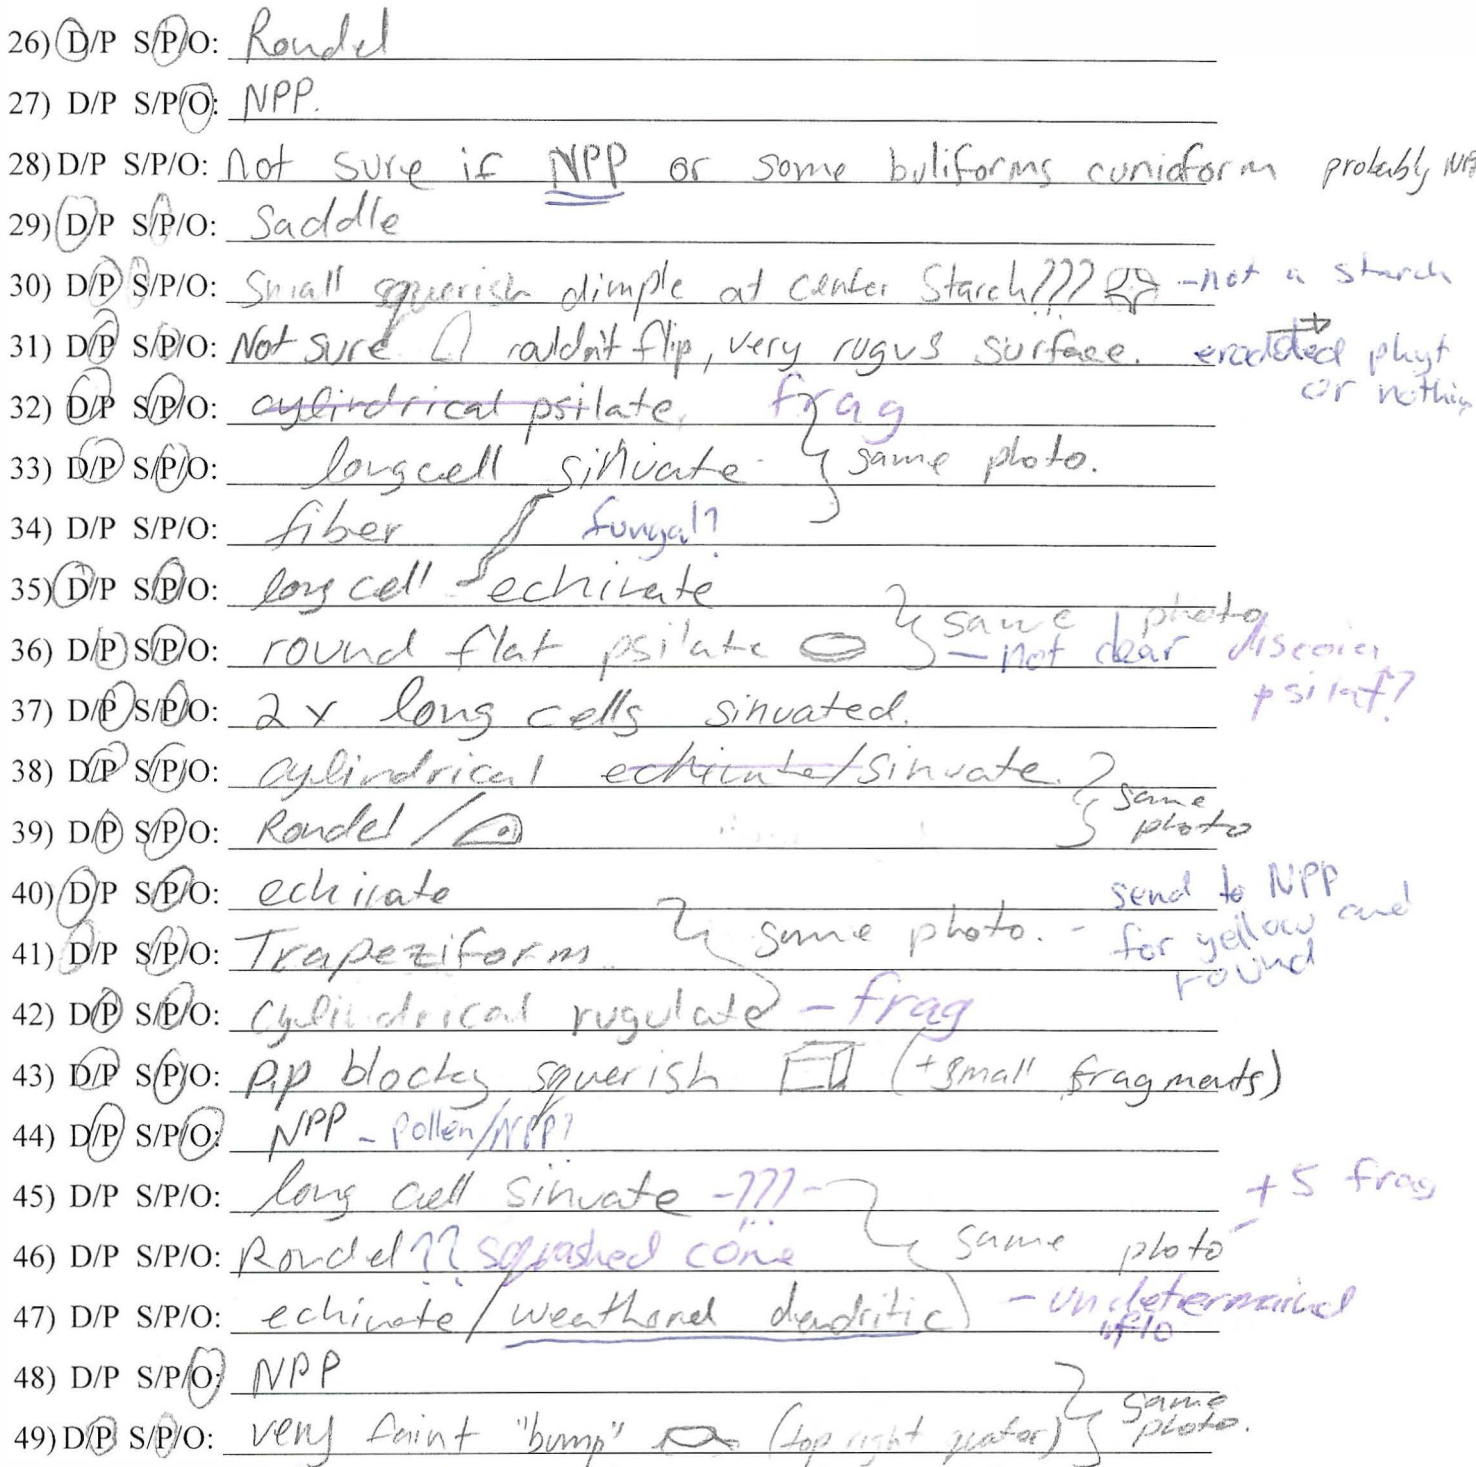 26) D/P S/P/O: Rondel
27) D/P S/P/O: NPP.
28) D/P S/P/O: Not sure if NPP or some buliforms cuniaform probably NPP
29) D/P S/P/O: Saddle
30) D/P S/P/O: Small squerish dimple at center Starch??? - not a starch
31) D/P S/P/O: Not sure couldn't flip, very rugus surface. erodded phyt
or nothing
32) D/P S/P/O: cylindrical psilate. frag
33) D/P S/P/O: longcell sinuate same photo.
34) D/P S/P/O: fiber fungal?
35) D/P S/P/O: long cell echinate
same photo
36) D/P S/P/O: round flat psilate - not clear
psilat?
37) D/P S/P/O: 2x long cells sinuated.
38) D/P S/P/O: cylindrical echinate/sinuate.
same
photo
39) D/P S/P/O: Rondel /
40) D/P S/P/O: echinate
send to NPP
41) D/P S/P/O: Trapeziform same photo. - for yellow and
round
42) D/P S/P/O: Cylindrical rugulate - frag
43) D/P S/P/O: pip blocky squerish (+small fragments)
44) D/P S/P/O: NPP - Pollen/NPP?
45) D/P S/P/O: long cell sinuate -???- + 5 frag
46) D/P S/P/O: Rondel?? squashed cone same photo
47) D/P S/P/O: echinate/weathered dendritic - undetermained
48) D/P S/P/O: NPP
same
photo.
49) D/P S/P/O: very faint "bump" (top right quator)